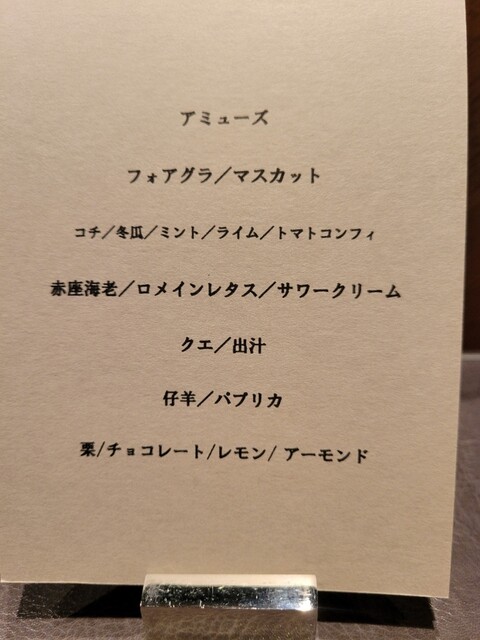 アミューズ
フォアグラ／マスカット
コチ／冬瓜／ミント／ライム／トマトコンフィ
赤座海老／ロメインレタス／サワークリーム
クエ／出汁
仔羊／パプリカ
栗/チョコレート/レモン/ アーモンド